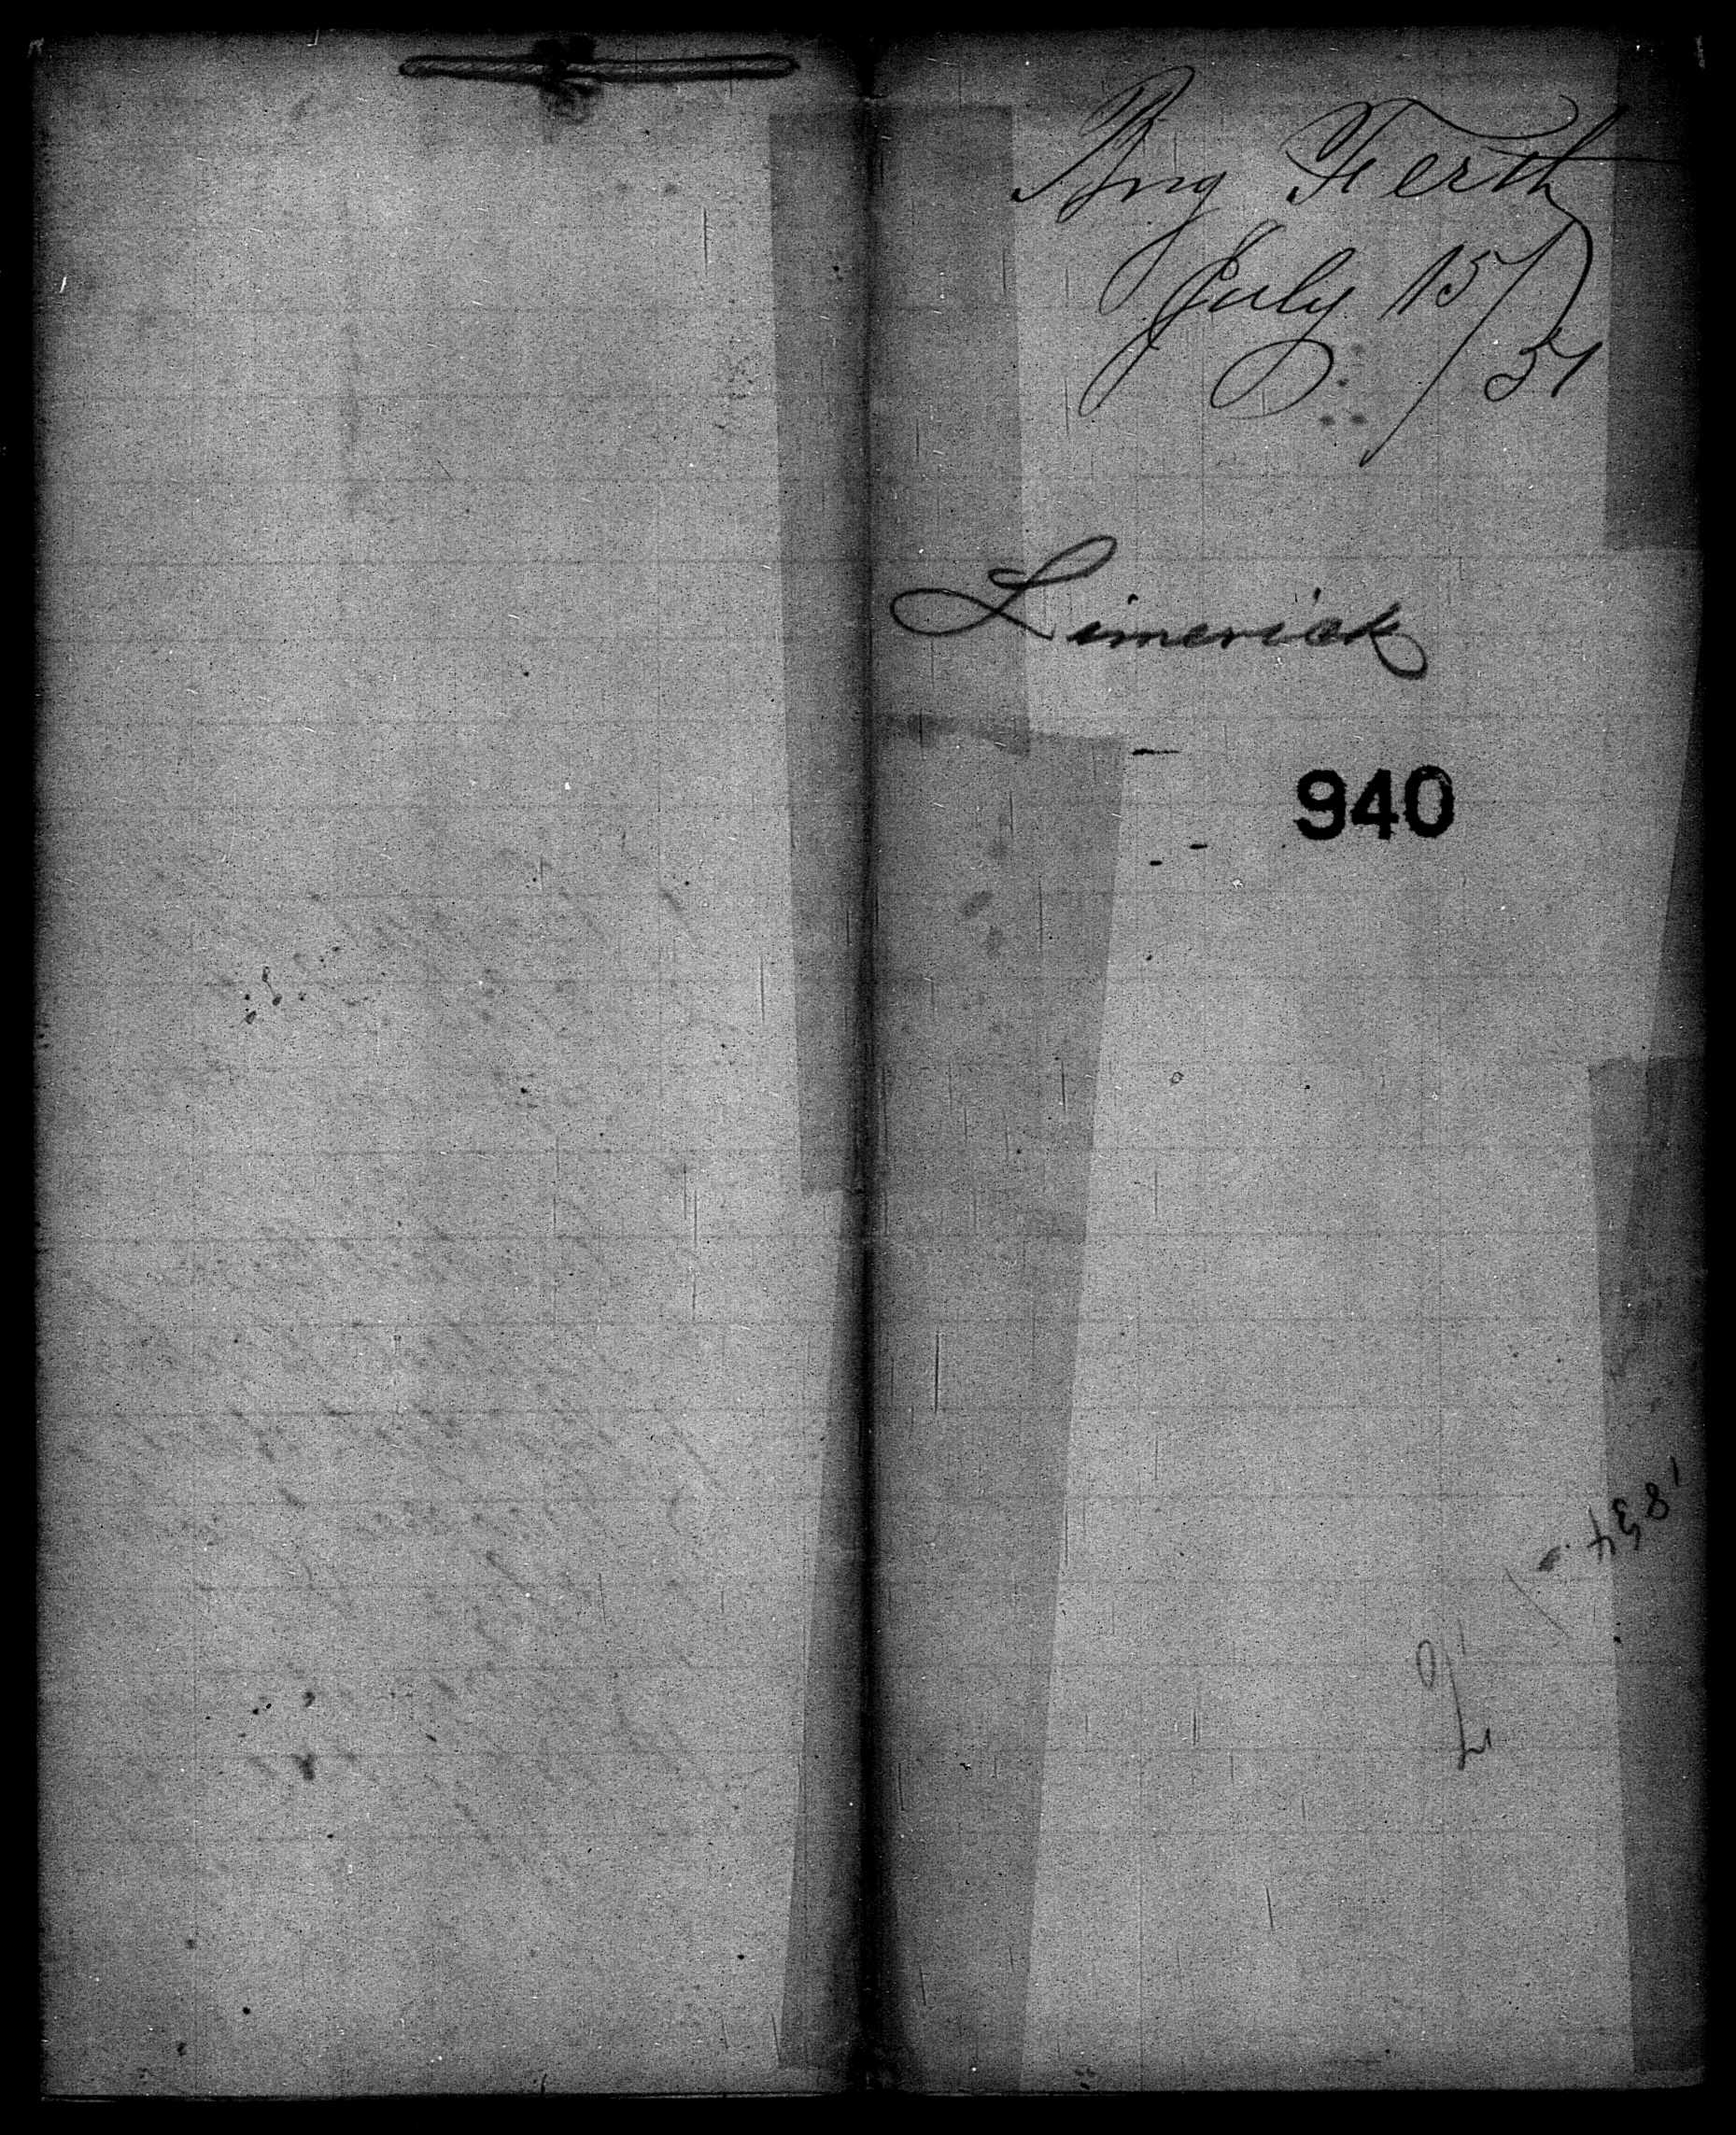 Brig Ferth
July 15/51
Limerick
940
1834